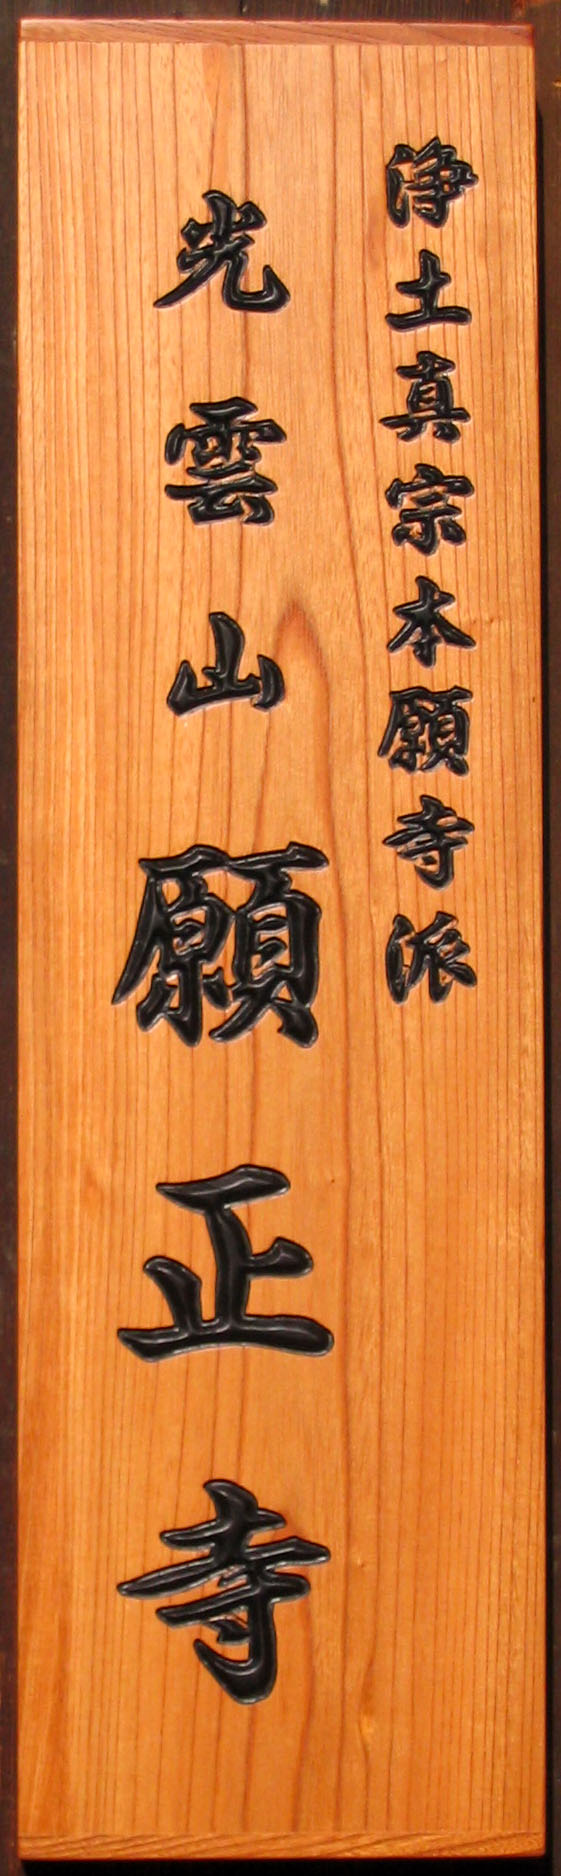 浄土真宗本願寺派
光雲山願正寺